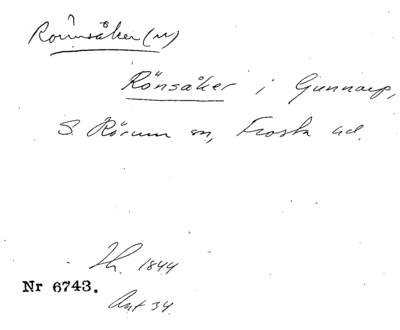 Rönnsåker (n)
Rönsåker i Gunnarp,
S. Rörum sn, Frosta hd.
Th. 1844
Nr 6743.
Ant 34.